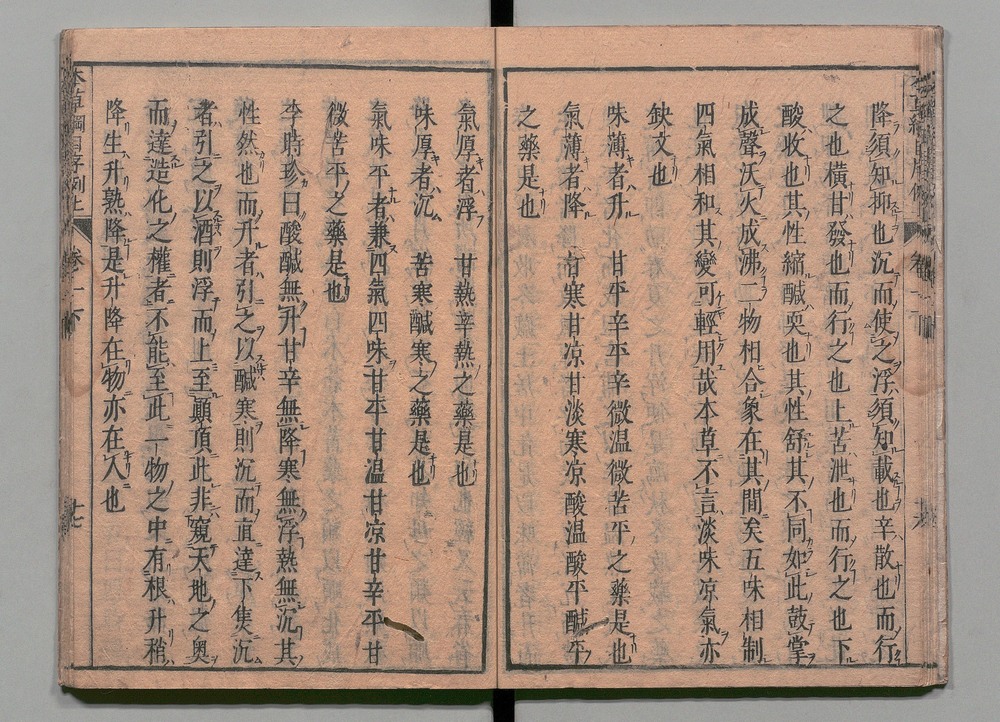 降須知抑也沉而使之浮須知載也辛散也而行
之也橫甘發也而行之也上苦泄也而行之也下
酸收也其性縮醎耎也其性舒其不同如此鼓掌
成聲沃火成沸二物相合象在其間矣五味相制
四氣相和其變可輕用哉本草不言淡味凉氣亦
缺文也
味薄者升 甘平辛平辛微温微苦平之藥是也
氣薄者降 甘寒甘凉甘淡寒凉酸温酸平醎平
之藥是也
氣厚者浮 甘熱辛熱之藥是也
味厚者沉 苦寒醎寒之藥是也
氣味平者兼四氣四味甘平甘温甘凉甘辛平甘
微苦平之藥是也
李時珍曰酸醎無升甘辛無降寒無浮熱無沉其
性然也而升者引之以醎寒則沉而直達下焦沉
者引之以酒則浮而上至顚頂此非窺天地之奥
而達造化之權者不能至此一物之中有根升稍
降生升熟降是升降在物亦在人也
本草綱目序例上 卷一下 十七